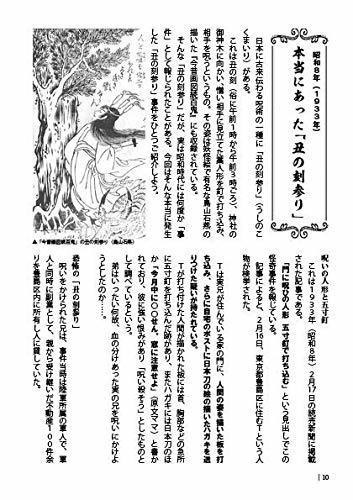 昭和8年（1933年）
本当にあった「丑の刻参り」
日本に古来伝わる呪術の一種に「丑の刻参り」（うしのこ
くまいり）がある。
これは丑の刻（俗に午前1時から午前3時ごろ）、神社の
御神木に向かい、憎い相手に見立てた藁人形を釘で打ち込み、
相手を呪うというもの。その姿は妖怪絵で有名な鳥山石燕の
描いた『今昔画図続百鬼』にも収録されている。
そんな「丑の刻参り」だが、実は昭和時代には何度か「事
件」として報じられたことがある。今回はそんな本当に発生
した「丑の刻参り」事件をひとつご紹介しよう。
▲『今昔画図続百鬼』の丑の刻参り（鳥山石燕）
呪いの人形と五寸釘
これは1933年（昭和8年）2月17日の読売新聞に掲載
された記事である。
「門に呪いの人形 五寸釘で打ち込む」という見出しでこの
怪奇事件を報じている。
記事によると、2月16日、東京都豊島区に住むTという人
物が検挙された。
Tは実兄が住んでいる家の門に、人間の姿を描いた板を打
ち込み、さらに自宅のポストに日本刀の絵の描いたハガキを送
りつけた疑いが持たれている。
Tが打ち付けた人間が描かれた板には首、胸部などの急所
に五寸釘を打ち込んだ跡があり、またハガキには日本刀のほ
か「今月中にこのうち、窓に注意せよ」（原文ママ）と書か
れており、彼に強い恨みがあり「呪い殺そう」としたものと
して調べているという。
弟はいったい何故、血の分けあった実の兄を呪いにかけよ
うとしたのか……。
恐怖の「丑の刻参り」
呪いをかけられた兄は、事件当時は陸軍所属の軍人で、軍
人と同時に副業として、親から受け継いだ不動産100件余
りを豊島区内に所有し人に貸していた。
10